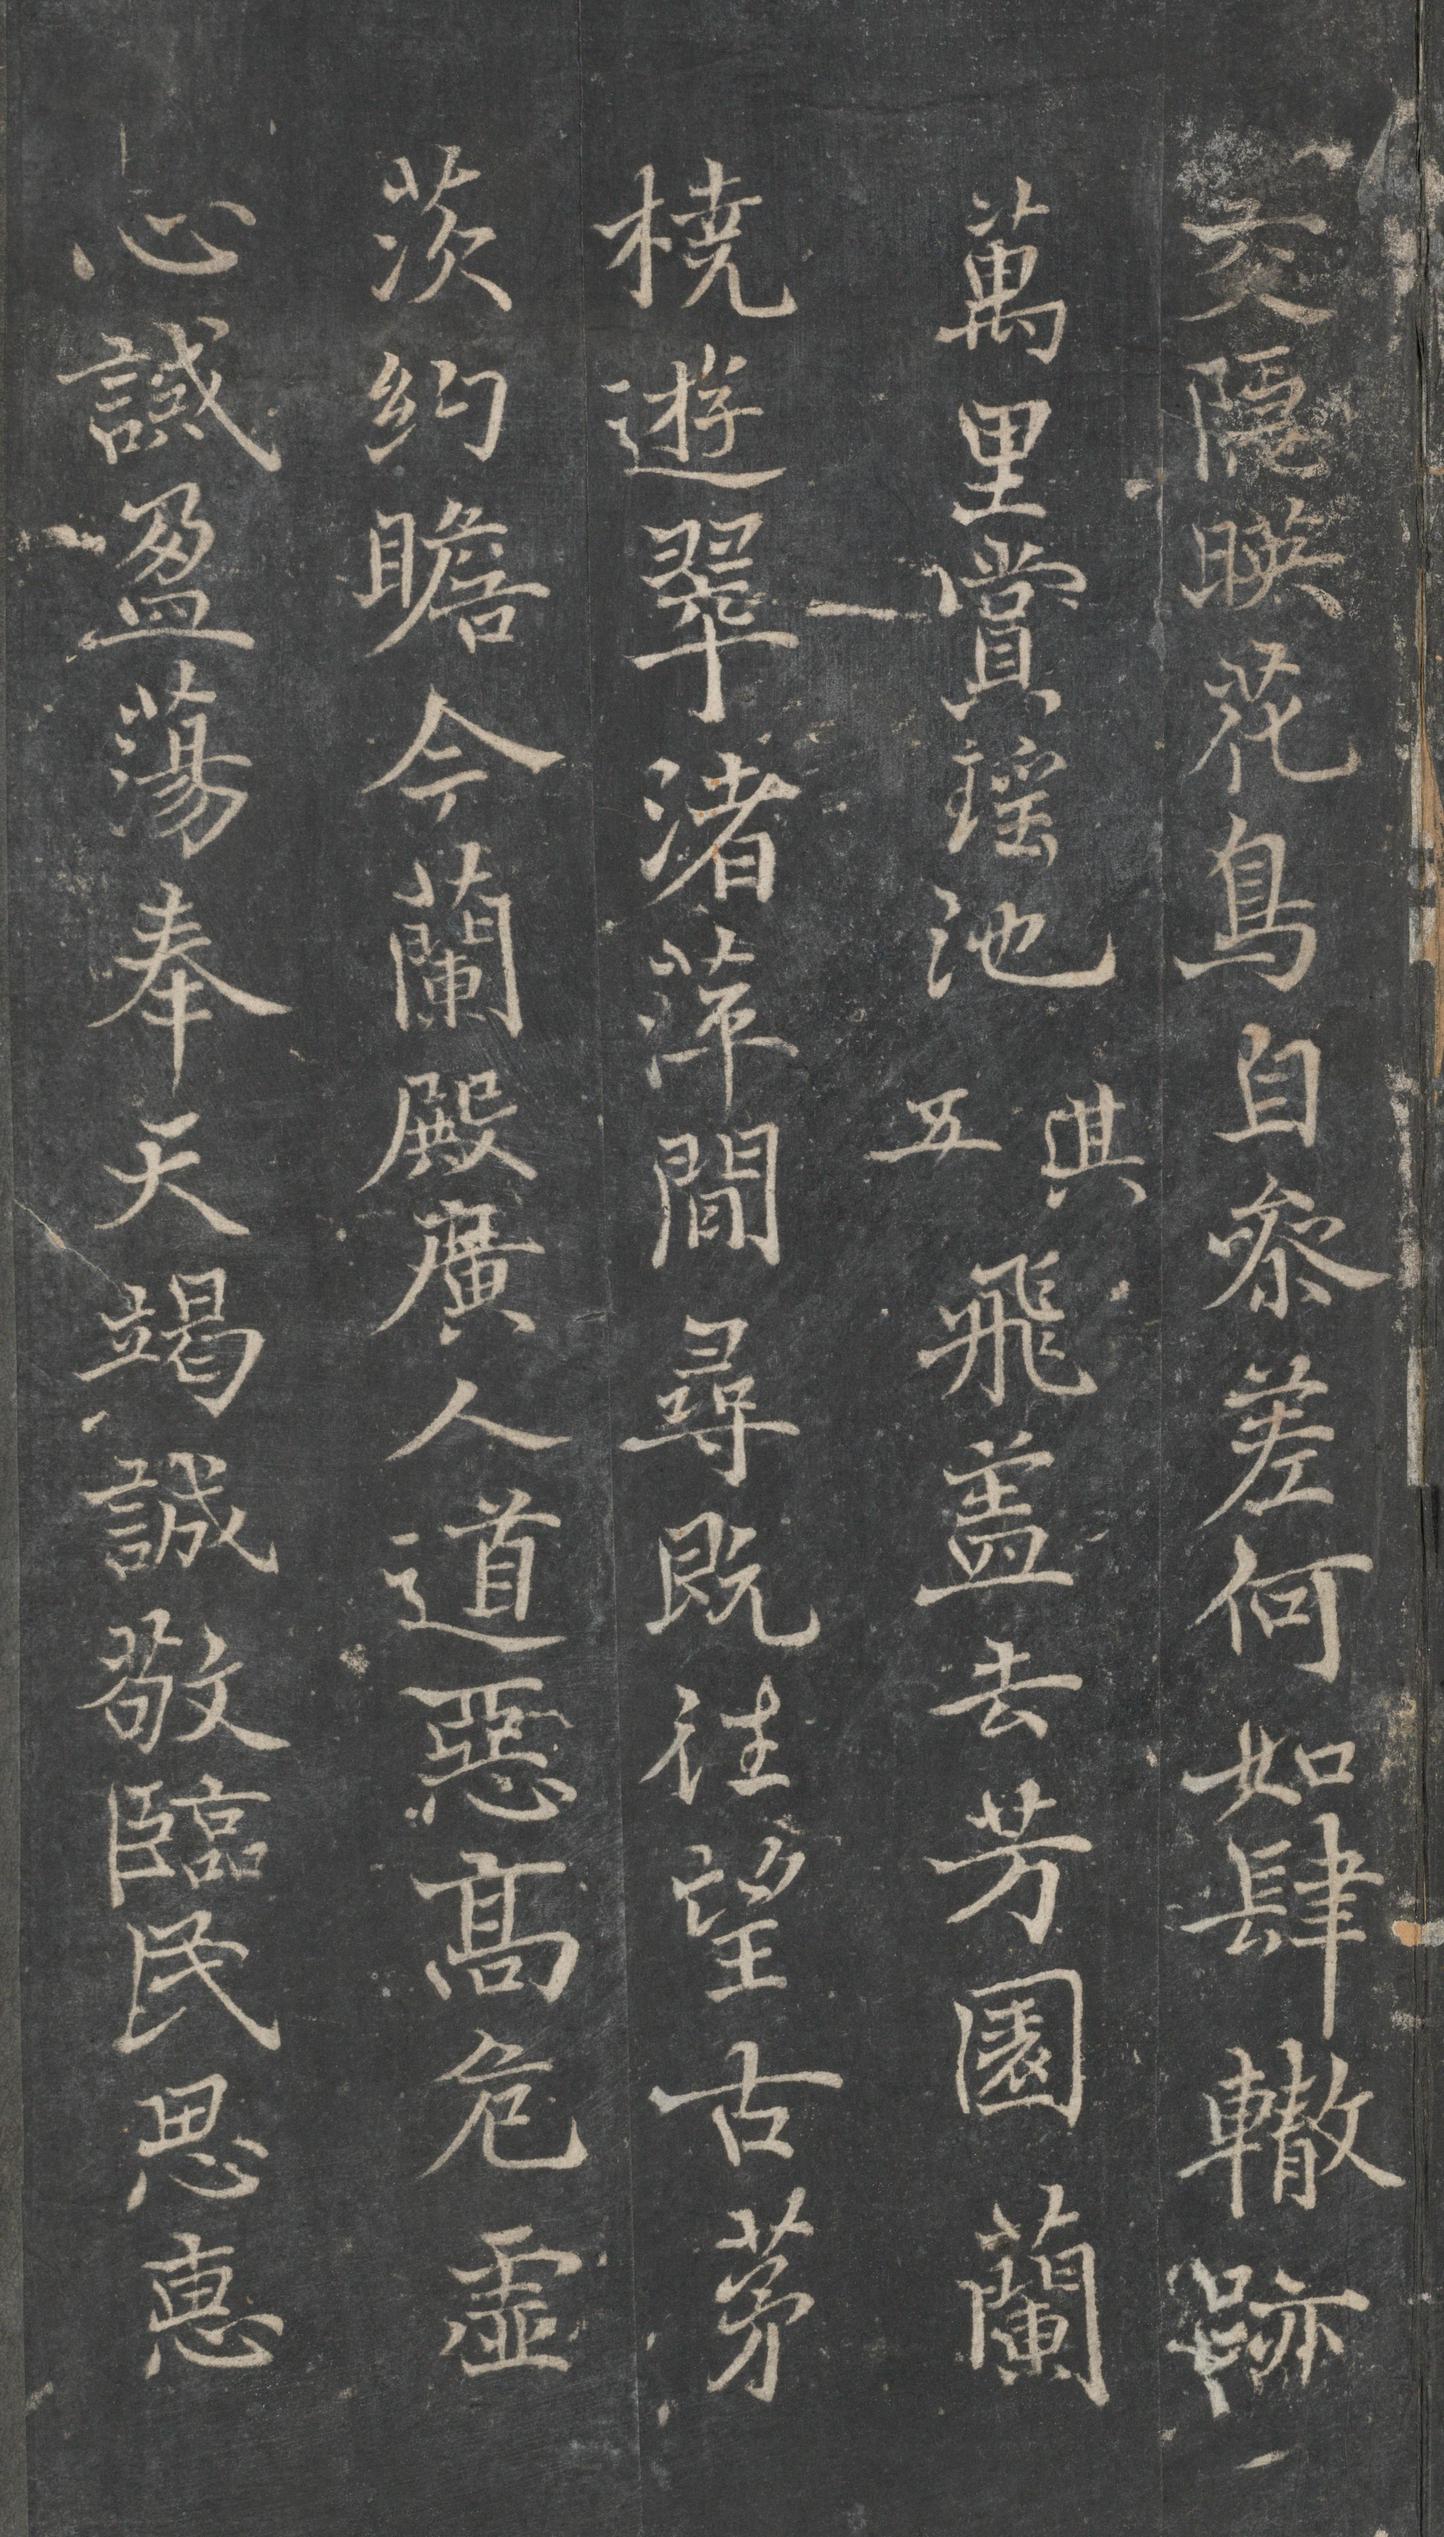 交隱暎花鳥自參差何如肆轍跡
萬里賞瑶池 其五 飛盖去芳園蘭
橈遊翠渚萍間尋既往望古茅
茨約瞻今蘭殿廣人道惡高危虛
心誡盈蕩奉天竭誠敬臨民思惠